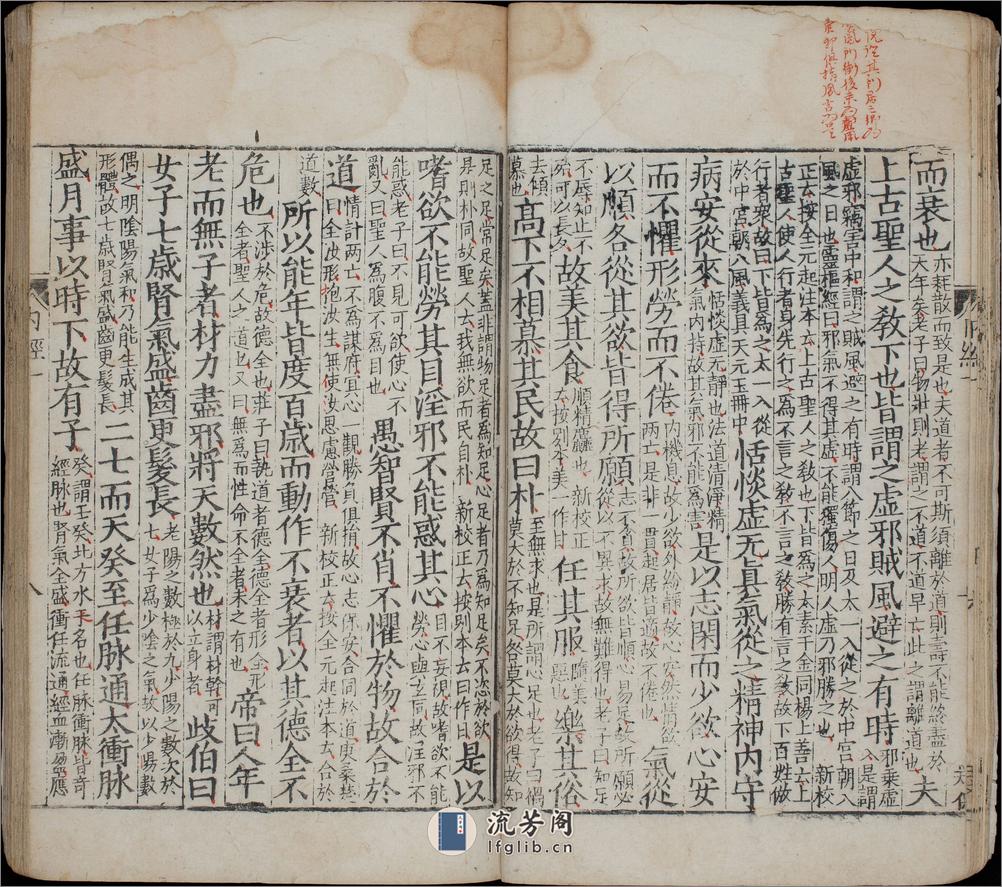 而衰也亦耗散而致是也夫道者不可斯須離於道則壽不能終盡於天年矣老子曰物壯則老謂之不道不道早亡此之謂離道也夫
上古聖人之教下也皆謂之虛邪賊風避之有時邪乘虛入是謂
虛邪竊害中和謂之賊風避之有時謂八節之日及太一入從之於中宮朝八風之日也靈樞經曰邪氣不得其虛不能獨傷人明人虛乃邪勝之也 新校
正云按全元起注本云上古聖人之教也下皆為之太素千金同楊上善云上古聖人使人行者身先行之為不言之教不言之教勝有言之教故下百姓做
行者衆故曰下皆為之太一入從於中宮朝八風義具天元玉冊中恬惔虛无真氣從之精神內守
病安從來恬惔虛無靜也法道清淨精氣內持故其氣邪不能為害是以志閑而少欲心安
而不懼形勞而不倦內機息故少欲外紛靜故心安然情欲兩亡是非一貫起居皆適故不倦也氣從
以順各從其欲皆得所願志不貪故所欲皆順心易足故所願必從以不異求故無難得也老子曰知足
不辱知止不殆可以長久故美其食順精麤也 新校正云按別本美一作甘任其服隨美惡也樂其俗
去傾慕也高下不相慕其民故曰朴至無求也是所謂心足也老子曰禍莫大於不知足咎莫大於欲得故知
足之足常足矣蓋非謂物足者為知足心足者乃為知足矣不恣於欲是則朴同故聖人云我無欲而民自朴 新校正云按別本云曰作日是以
嗜欲不能勞其目淫邪不能惑其心目不妄視故嗜欲不能勞心與玄同故淫邪不
能惑老子曰不見可欲使心不亂又曰聖人為腹不為目也愚智賢不肖不懼於物故合於
道情計兩亡不為謀府冥心一觀勝負俱捐故心志保安合同於道庚桑楚曰全汝形抱汝生無使汝思慮營營 新校正云按全元起注本云合於
道數所以能年皆度百歲而動作不衰者以其德全不
危也不涉於危故德全也莊子曰執道者德全德全者形全形全者聖人之道也又曰無為而性命不全者未之有也帝曰人年
老而無子者材力盡邪將天數然也材謂材幹可以立身者歧伯曰
女子七歲腎氣盛齒更髮長老陽之數極於九少陽之數次於七女子為少陰之氣故以少陽數
偶之明陰陽氣和乃能生成其形體故七歲腎氣盛齒更髮長二七而天癸至任脉通太衝脉
盛月事以時下故有子癸謂壬癸北方水干名也任脉衝脉皆奇經脉也腎氣全盛衝任流通經血漸盈應
内經一
八
流芳阁
lfglib.cn